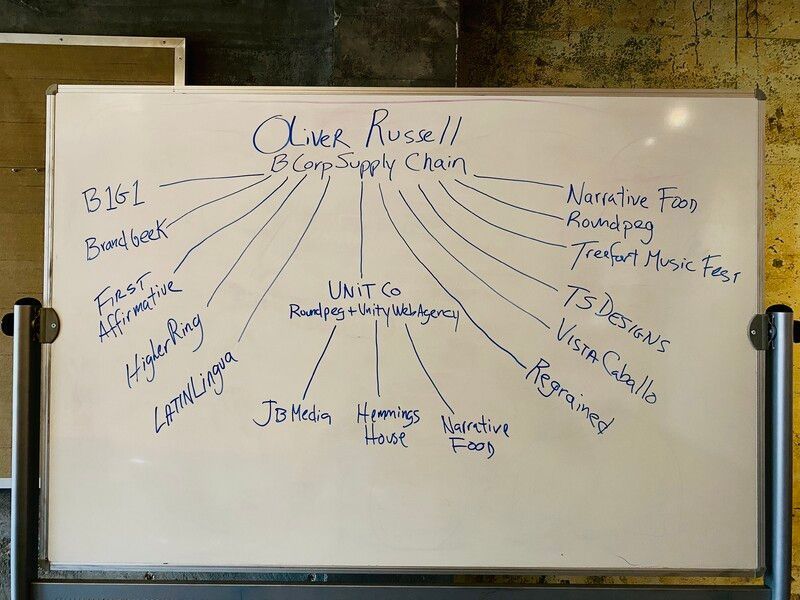 Oliver Russell
B Corp Supply Chain
B1G1
BrandGeek
First
Affirmative
HigherRing
LATINLingua
UNiT Co
Roundpeg + Unity Web Agency
JB Media
Hemmings
House
Narrative
Food
Narrative Food
Roundpeg
Treefort Music Fest
TS Designs
Vista Caballo
Regrained